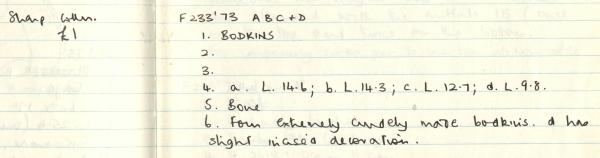 Sharp Colln.
£1
F233'73 ABC+D
1. BODKINS
2.
3.
4. a. L. 14.6; b. L. 14.3; c. L. 12.7; d. L. 9.8.
5. Bone
6. Four extremely crudely made bodkins. d has
slight incised decoration.